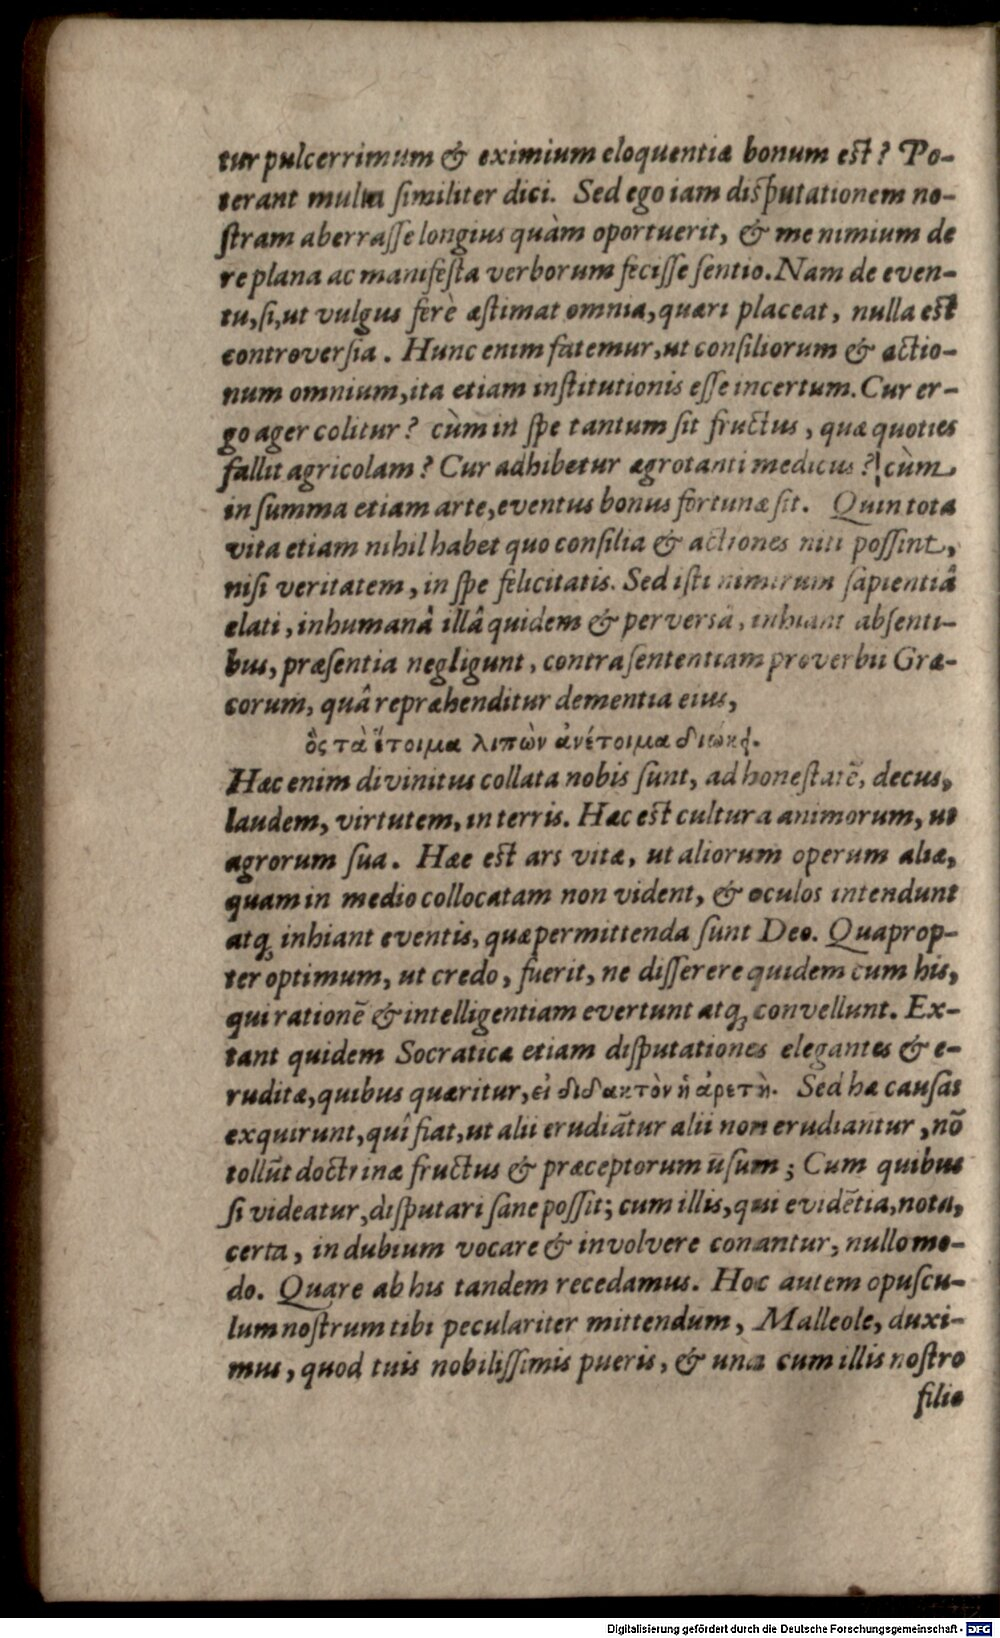 tur pulcerrimum & eximium eloquentiæ bonum est? Po-
terant multa similiter dici. Sed ego iam disputationem no-
stram aberrasse longius quàm oportuerit, & me nimium de
re plana ac manifesta verborum fecisse sentio. Nam de even-
tu, si, ut vulgus ferè æstimat omnia, quæri placeat, nulla est
controversia. Hunc enim fatemur, ut consiliorum & actio-
num omnium, ita etiam institutionis esse incertum. Cur er-
go ager colitur? cùm in spe tantum sit fructus, quæ quoties
fallit agricolam? Cur adhibetur ægrotanti medicus? cùm
in summa etiam arte, eventus bonus fortunæ sit. Quin tota
vita etiam nihil habet quo consilia & actiones niti possint,
nisi veritatem, in spe felicitatis. Sed isti nimirum sapientiâ
elati, inhumanâ illâ quidem & perversâ, inhiant absenti-
bus, præsentia negligunt, contra sententiam proverbii Græ-
corum, quâ reprehenditur dementia eius,
ὃς τὰ ἕτοιμα λιπὼν ἀνέτοιμα διώκει.
Hæc enim divinitus collata nobis sunt, ad honestatē, decus,
laudem, virtutem, in terris. Hæc est cultura animorum, ut
agrorum sua. Hæc est ars vitæ, ut aliorum operum aliæ,
quam in medio collocatam non vident, & oculos intendunt
atq; inhiant eventis, quæ permittenda sunt Deo. Quaprop-
ter optimum, ut credo, fuerit, ne disserere quidem cum his,
qui rationē & intelligentiam evertunt atq; convellunt. Ex-
tant quidem Socraticæ etiam disputationes elegantes & e-
ruditæ, quibus quæritur, εἰ διδακτὸν ἡ ἀρετή. Sed hæ causas
exquirunt, quî fiat, ut alii erudiātur alii non erudiantur, nō
tollūt doctrinæ fructus & præceptorum ūsum; Cum quibus
si videatur, disputari sane possit; cum illis, qui evidētia, nota,
certa, in dubium vocare & involvere conantur, nullo mo-
do. Quare ab his tandem recedamus. Hoc autem opuscu-
lum nostrum tibi peculariter mittendum, Malleole, duxi-
mus, quod tuis nobilissimis pueris, & una cum illis nostro
filio
Digitalisierung gefördert durch die Deutsche Forschungsgemeinschaft - DFG